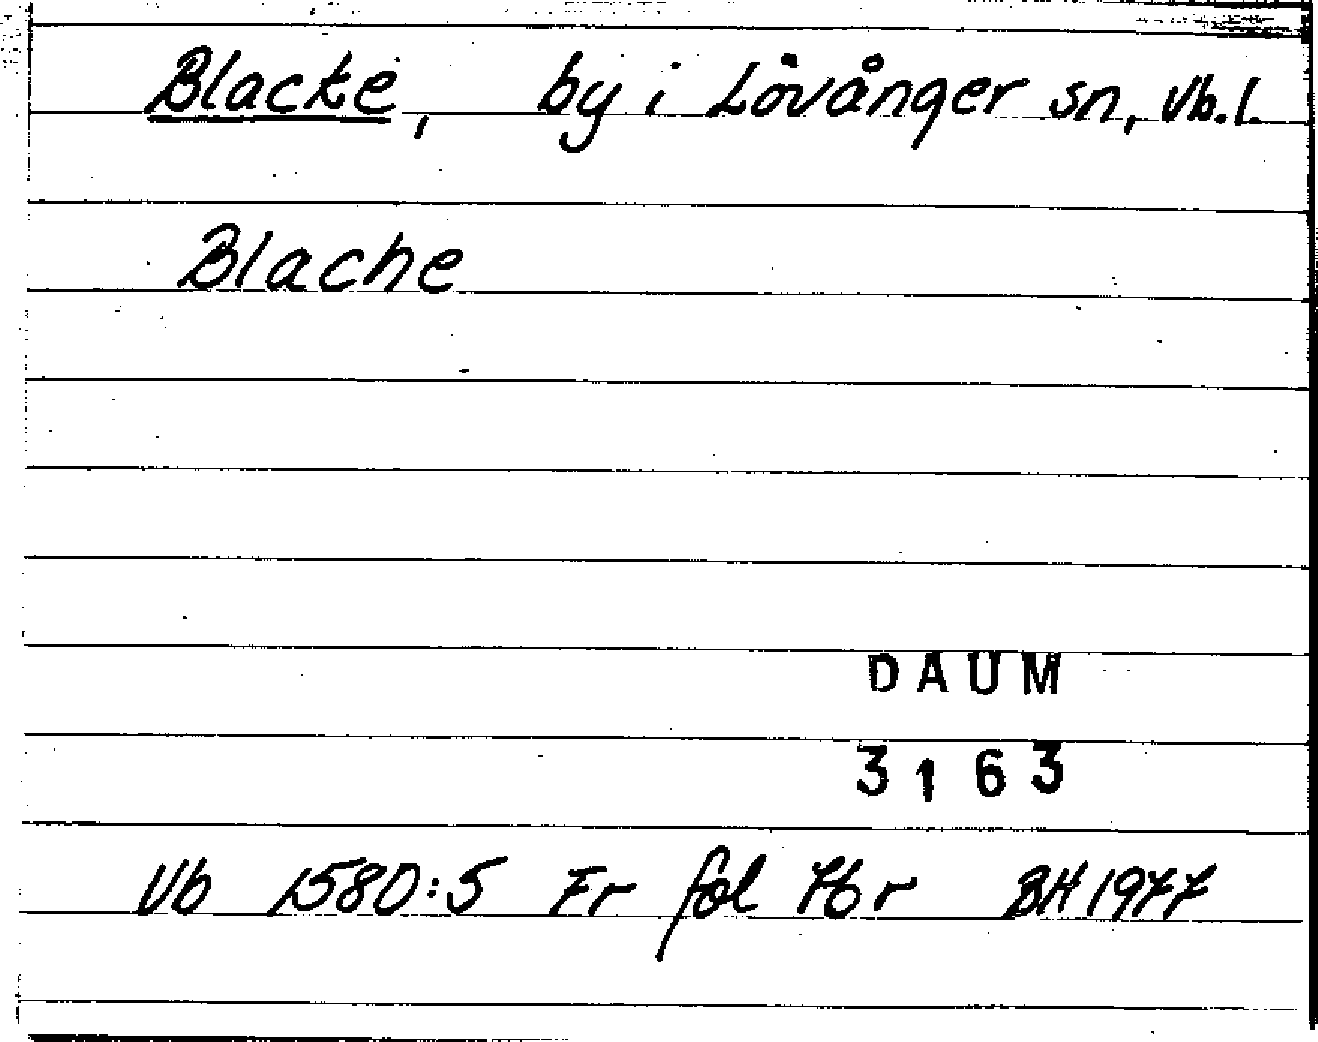 Blacke, by i Lövånger sn, Vb.l.
Blache
DAUM
3163
Vb 1580:5 Fr fol 76 r BH 1977